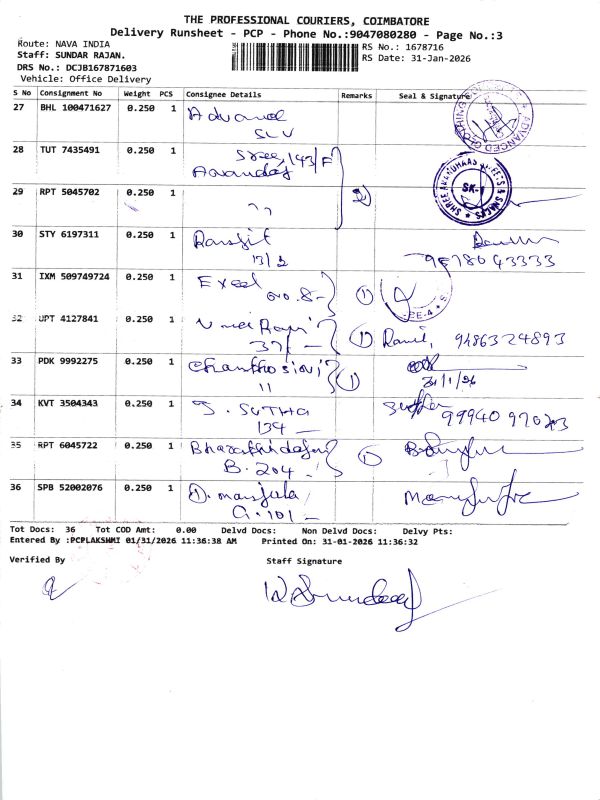 THE PROFESSIONAL COURIERS, COIMBATORE
Delivery Runsheet - PCP - Phone No.:9047080280 - Page No.:3
Route: NAVA INDIA
RS No.: 1678716
Staff: SUNDAR RAJAN.
RS Date: 31-Jan-2026
DRS No.: DCJB167871603
Vehicle: Office Delivery
S No Consignment No Weight PCS Consignee Details Remarks Seal & Signature
27 BHL 100471627 0.250 1
SLV
28 TUT 7435491 0.250 1 Sree 143/F
Aanandas
SK-1
29 RPT 5045702 0.250 1 "
30 STY 6197311 0.250 1 Ranjit
13/2
31 IXM 509749724 0.250 1 Excel 1
32 UPT 4127841 0.250 1 1 9486324893
37/-
33 PDK 9992275 0.250 1 1
11 31/1/26
34 KVT 3504343 0.250 1 S. SUTHA
134 -
35 RPT 6045722 0.250 1 1
B. 204
36 SPB 52002076 0.250 1 D. manjula
G. 101 -
Tot Docs: 36 Tot COD Amt: 0.00 Delvd Docs: Non Delvd Docs: Delvy Pts:
Entered By :PCPLAKSHMI 01/31/2026 11:36:38 AM Printed On: 31-01-2026 11:36:32
Verified By Staff Signature